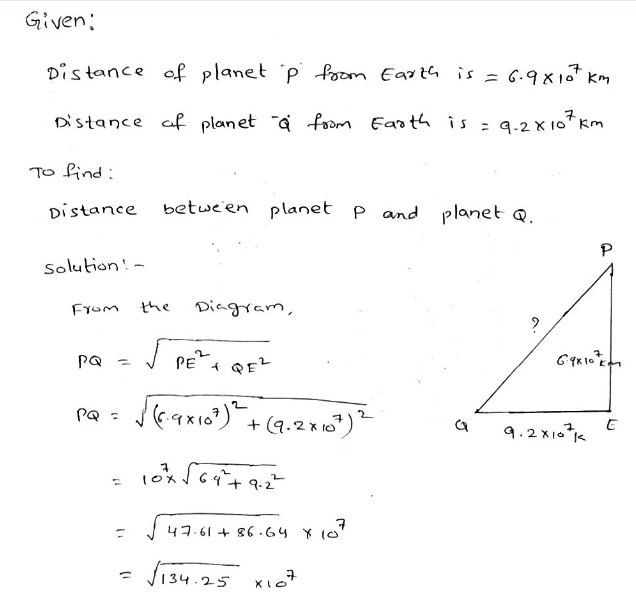 Given:
Distance of planet 'P' from Earth is = 6.9 x 10⁷ km
Distance of planet 'Q' from Earth is = 9.2 x 10⁷ km
To find:
Distance between planet P and planet Q.
Solution:-
From the Diagram,
PQ = √(PE² + QE²)
PQ = √((6.9x10⁷)² + (9.2x10⁷)²)
= 10⁷x √(6.9² + 9.2²)
= √(47.61 + 86.64) x 10⁷
= √134.25 x10⁷
P
?
6.9x10⁷km
Q
9.2x10⁷k
E